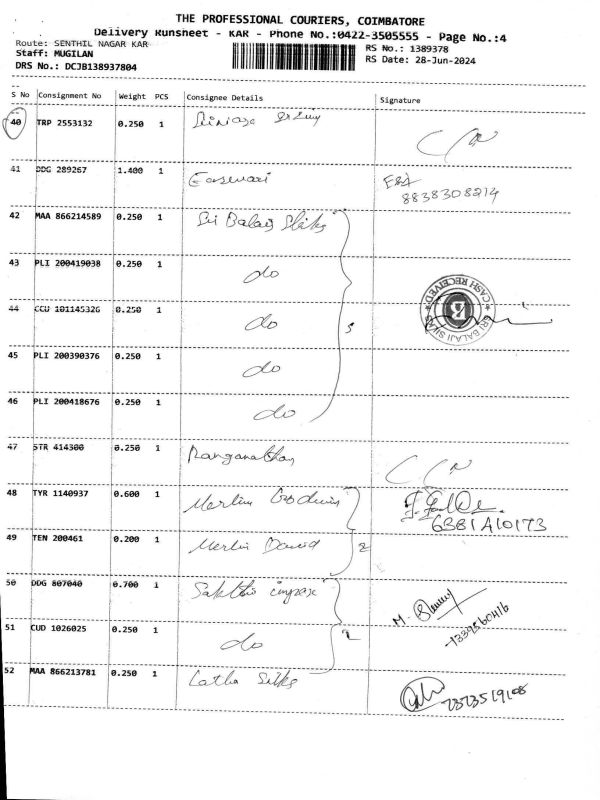 THE PROFESSIONAL COURIERS, COIMBATORE
Delivery Runsheet - KAR - Phone No.:0422-3505555 - Page No.:4
Route: SENTHIL NAGAR KAR
Staff: MUGILAN
DRS No.: DCJB138937804
RS No.: 1389378
RS Date: 28-Jun-2024
S No Consignment No Weight PCS Consignee Details Signature
40 TRP 2553132 0.250 1
41 DDG 289267 1.400 1 Easwari
8838308214
42 MAA 866214589 0.250 1 Sri Balaji Silks
43 PLI 200419038 0.250 1 do
44 CCU 101145326 0.250 1 do 5
CASH RECEIVED
SRI BALAJI SILKS
45 PLI 200390376 0.250 1 do
46 PLI 200418676 0.250 1 do
47 STR 414300 0.250 1 Ranganathan
48 TYR 1140937 0.600 1 Merlin Godwin
6381410173
49 TEN 200461 0.200 1 Merlin David 2
50 DDG 807040 0.700 1 Sakthi impex
51 CUD 1026025 0.250 1 do 2
52 MAA 866213781 0.250 1 Latha Silks